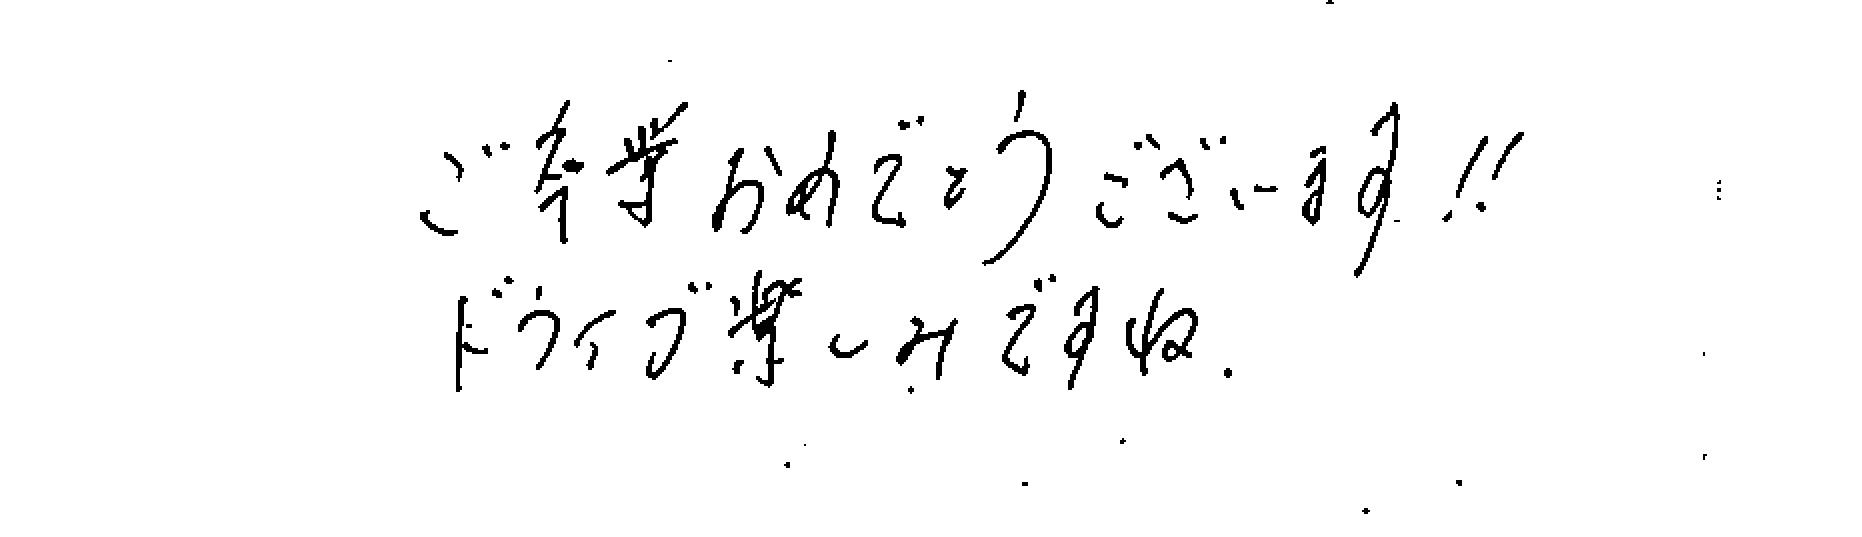 ご卒業おめでとうございます!!
ドライブ楽しみですね.